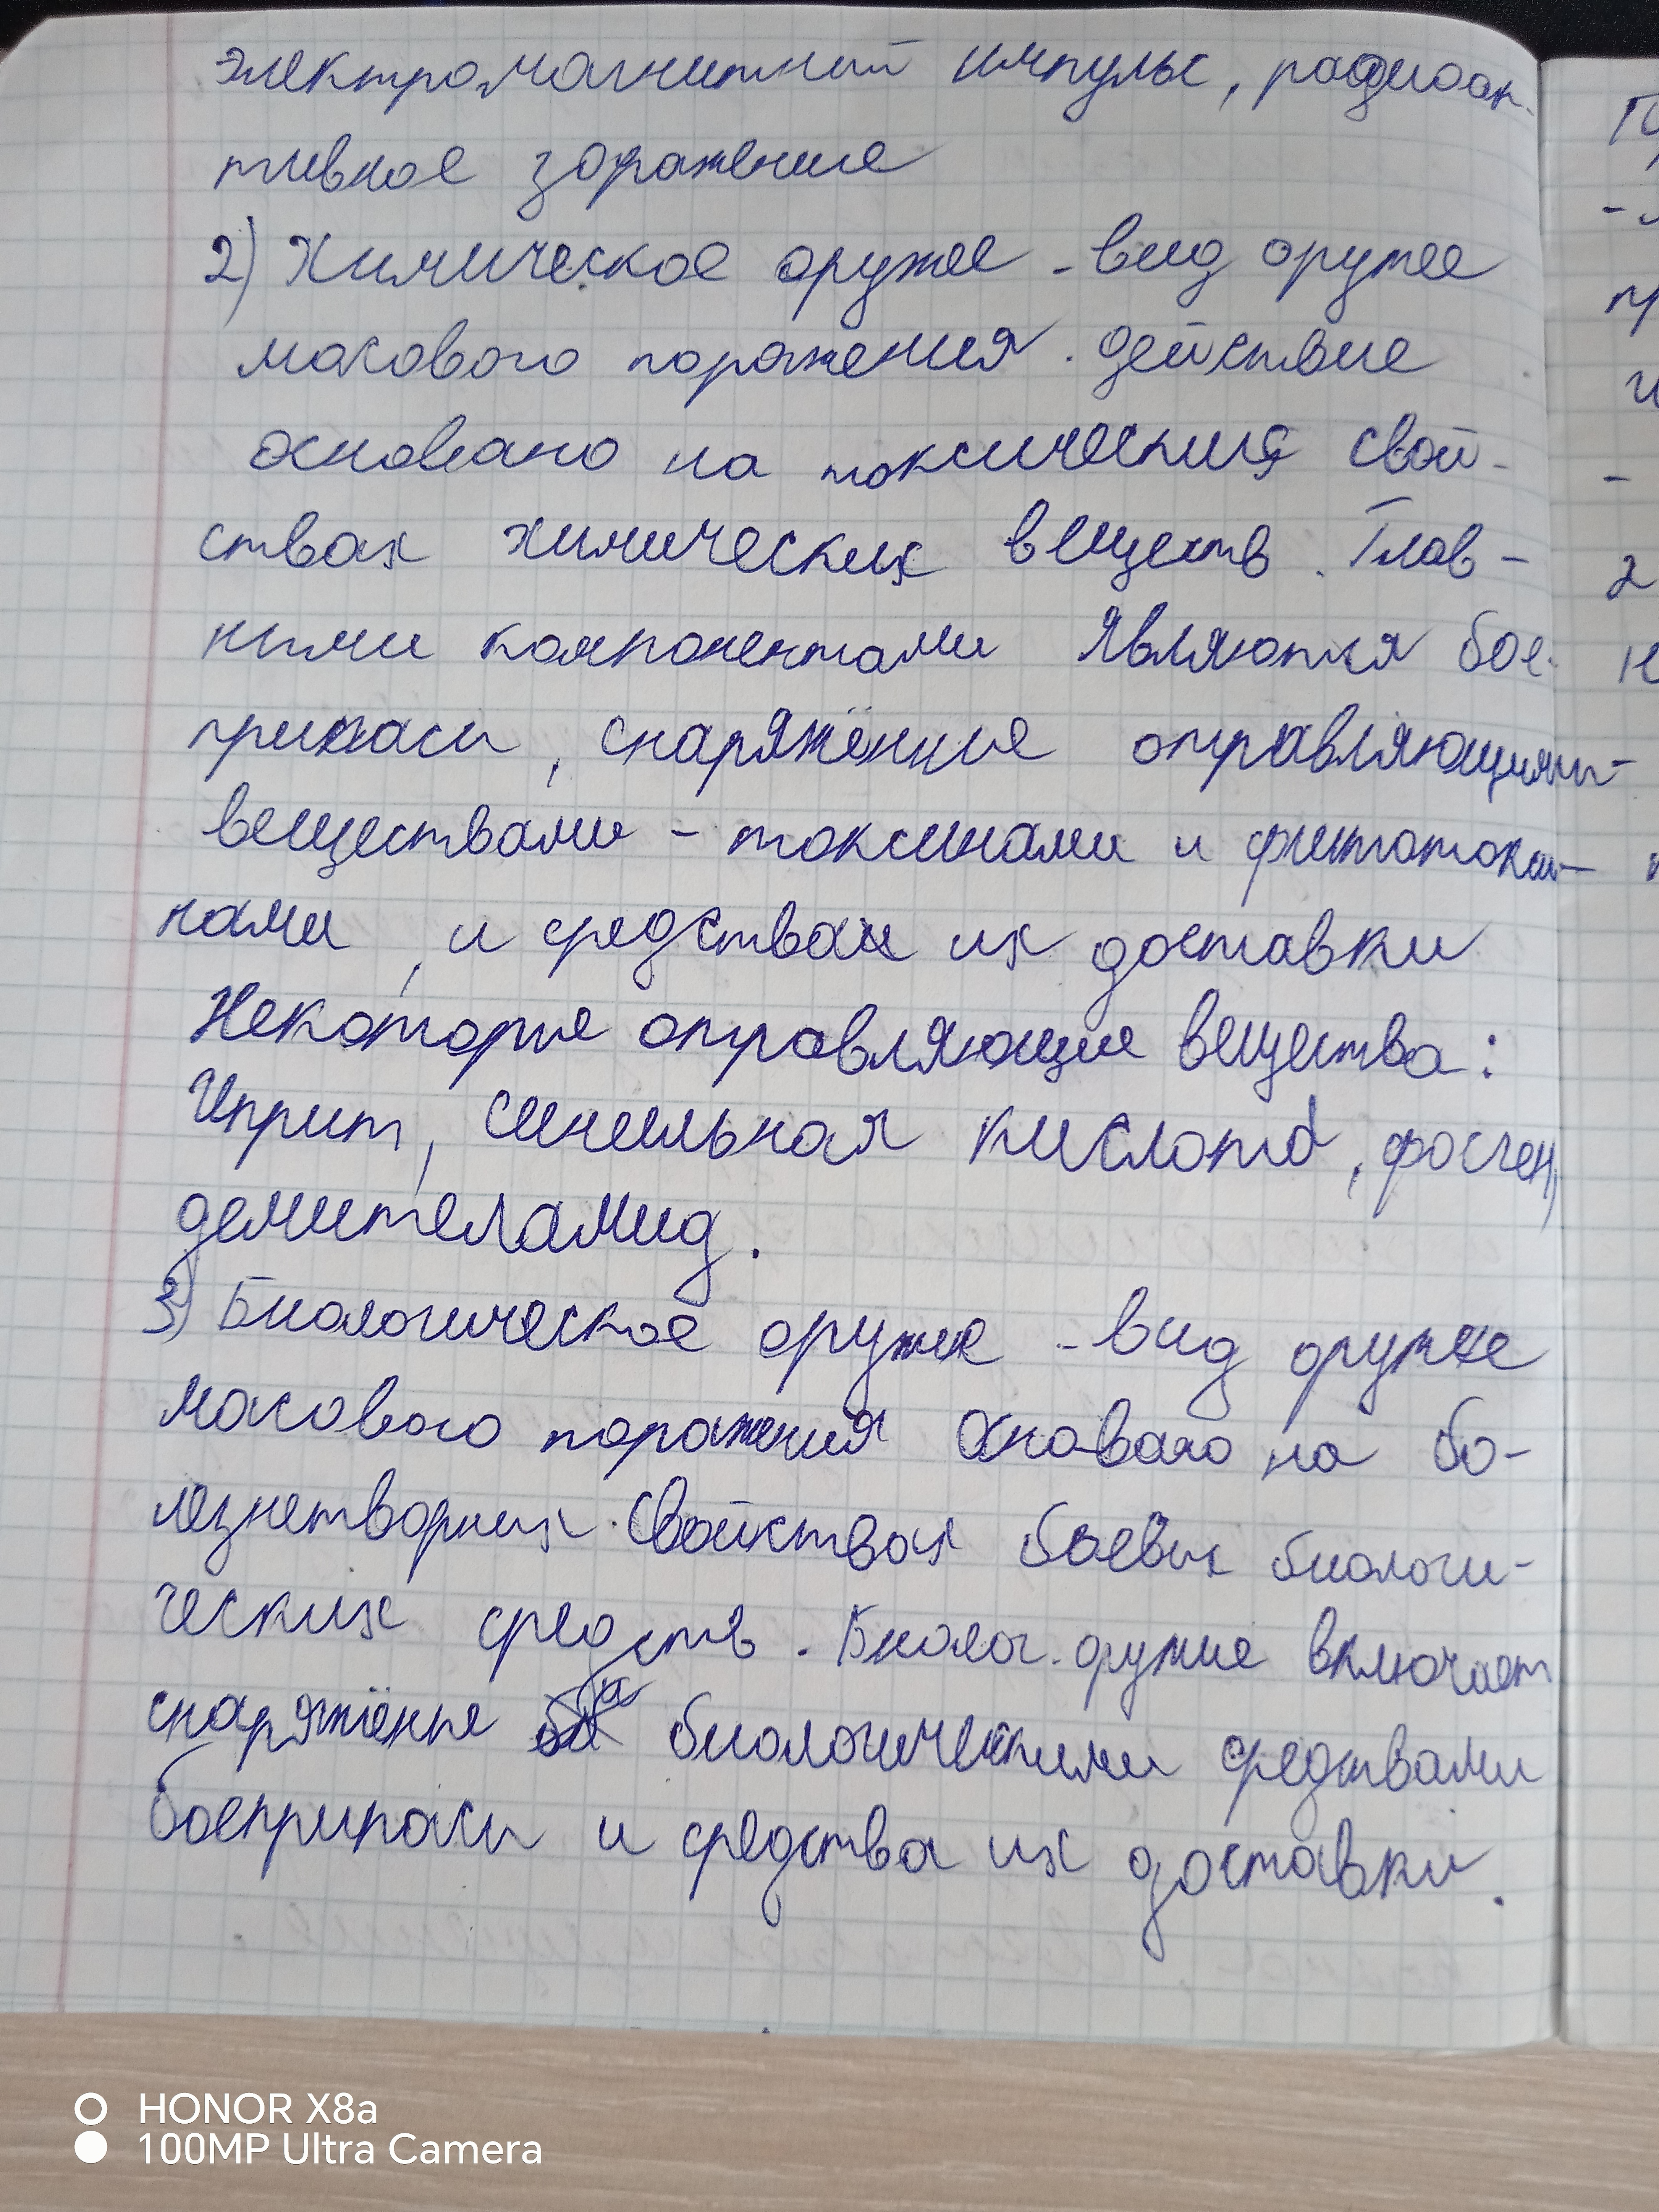 электромагнитный импульс, радиоак-
тивное заражение
2) Химическое оружее - вид оружее
масового поражения. действие
основано на токсических свой-
ствах химических веществ. Глав-
ными компонентами являются бое-
припасы, снаряжённые отравляющими-
веществами - токсинами и фитотокси-
нами, и средствах их доставки
Некоторые отравляющие вещества:
Иприт, синильная кислота, фосген,
демителамид.
3) Биологическое оружее - вид оружее
масового поражения основано на бо-
лезнетворных свойствах боевых биологи-
ческих средств. Биолог. оружие включает
снаряжённые биологическими средствами
боеприпасы и средства их доставки.
HONOR X8a
100MP Ultra Camera